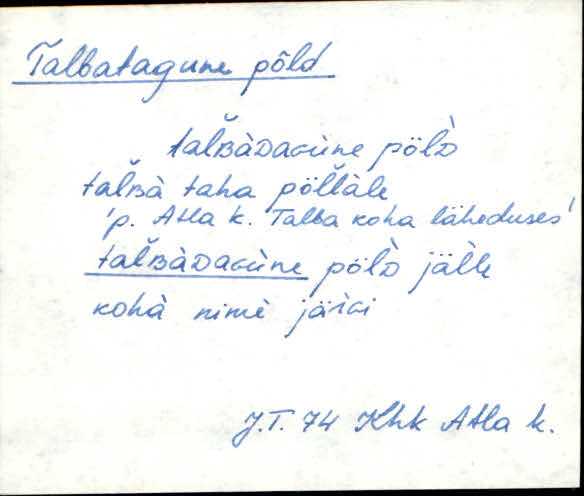 Talbatagune põld
tal̆ʙàᴅaɢùne pöl̀ᴅ
tal̆ʙà taha pöl̆làle
'p. Atla k. Talba koha läheduses'
tal̆ʙàᴅaɢùne pöl̀ᴅ jälle
kohà nimè järɢi
J.T. 74 Khk Atla k.